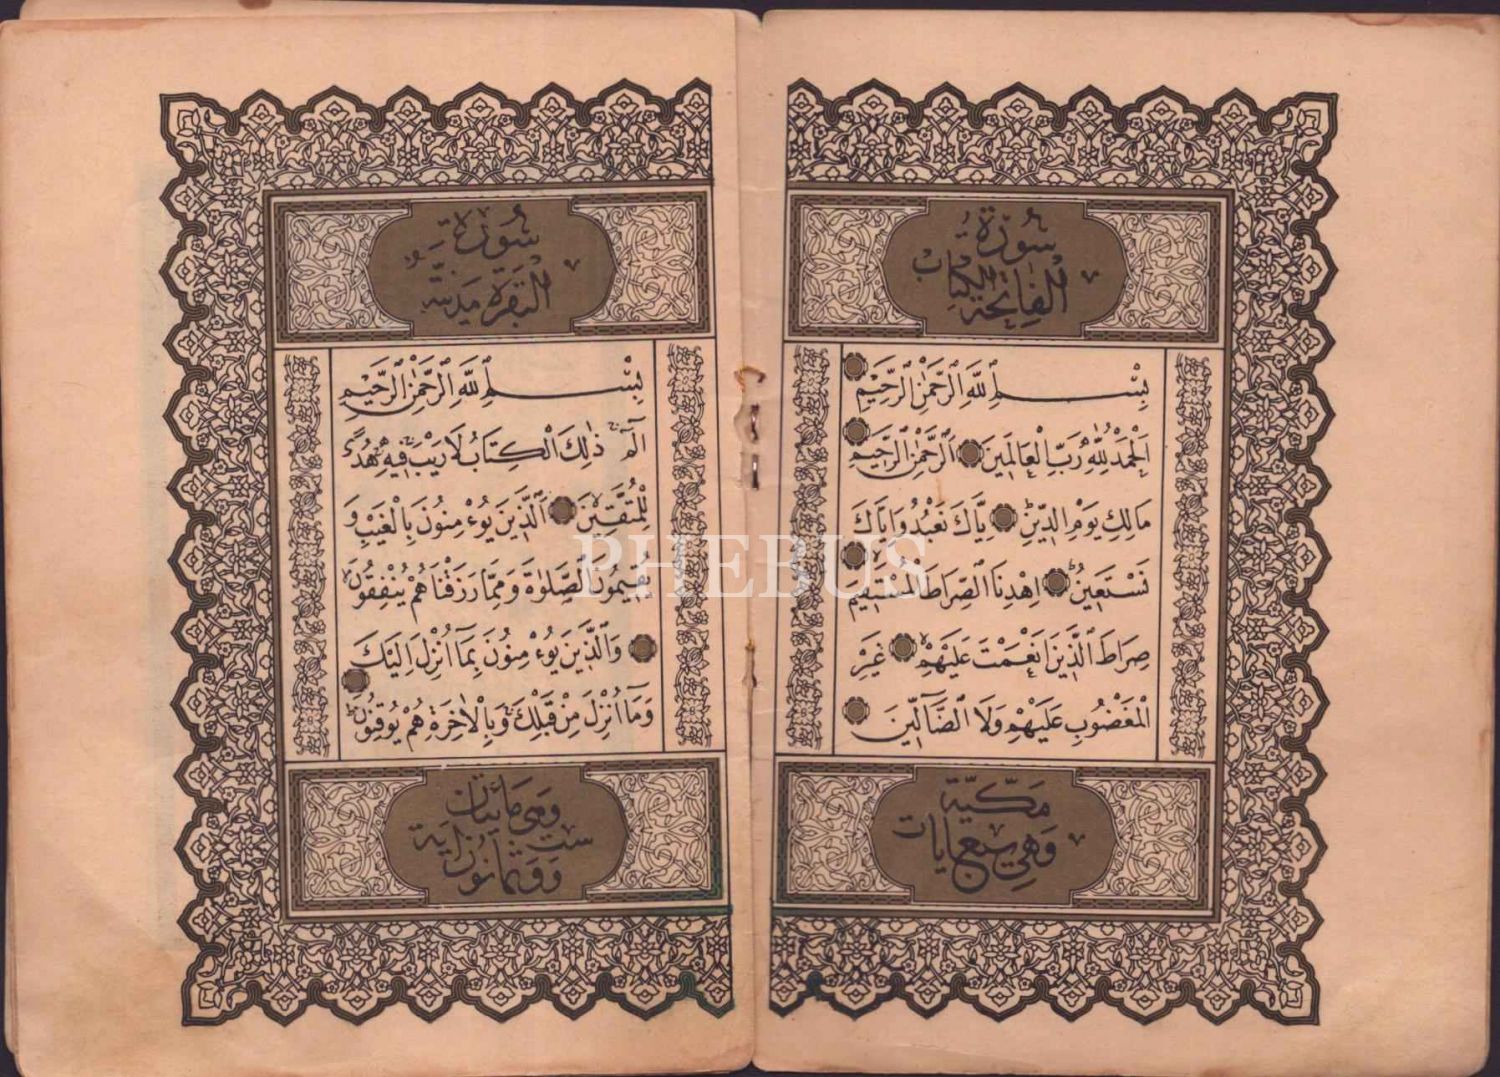 سُورَةُ
الْفَاتِحَةِ الْكِتَابِ
بِسْمِ اللّٰهِ الرَّحْمٰنِ الرَّحِيمِ
اَلْحَمْدُ لِلّٰهِ رَبِّ الْعَالَمِينَ الرَّحْمٰنِ الرَّحِيمِ
مَالِكِ يَوْمِ الدِّينِ اِيَّاكَ نَعْبُدُ وَاِيَّاكَ
نَسْتَعِينُ اِهْدِنَا الصِّرَاطَ الْمُسْتَقِيمَ
صِرَاطَ الَّذِينَ اَنْعَمْتَ عَلَيْهِمْ غَيْرِ
الْمَغْضُوبِ عَلَيْهِمْ وَلَا الضَّالِّينَ
مَكِّيَّة
وَهِيَ سَبْعُ اٰيَات
سُورَةُ
الْبَقَرَةِ مَدَنِيَّةٌ
بِسْمِ اللّٰهِ الرَّحْمٰنِ الرَّحِيمِ
الٓمٓ ذٰلِكَ الْكِتَابُ لَا رَيْبَ فِيهِ هُدًى
لِلْمُتَّقِينَ اَلَّذِينَ يُؤْمِنُونَ بِالْغَيْبِ وَ
يُقِيمُونَ الصَّلٰوةَ وَمِمَّا رَزَقْنَاهُمْ يُنْفِقُونَ
وَالَّذِينَ يُؤْمِنُونَ بِمَٓا اُنْزِلَ اِلَيْكَ
وَمَٓا اُنْزِلَ مِنْ قَبْلِكَ وَبِالْاٰخِرَةِ هُمْ يُوقِنُونَ
وَهِيَ مِائَتَانِ
وَسِتٌّ وَثَمَانُونَ اٰيَة
PHEBUS